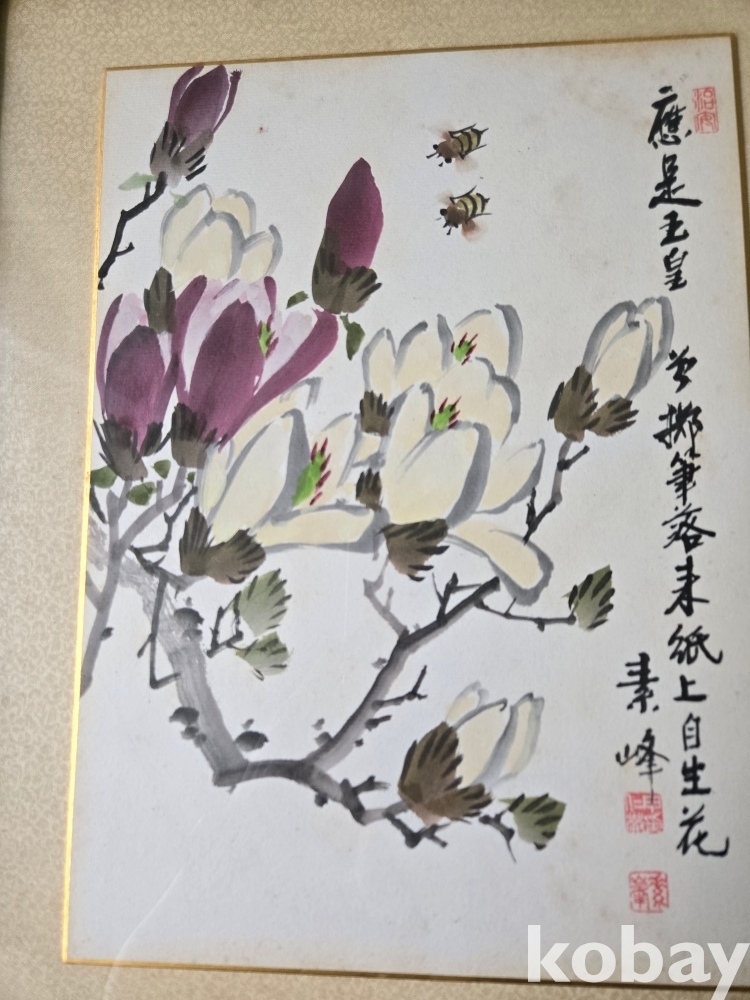 應是玉皇 曾擲筆落來紙上自生花
素峰
kobay